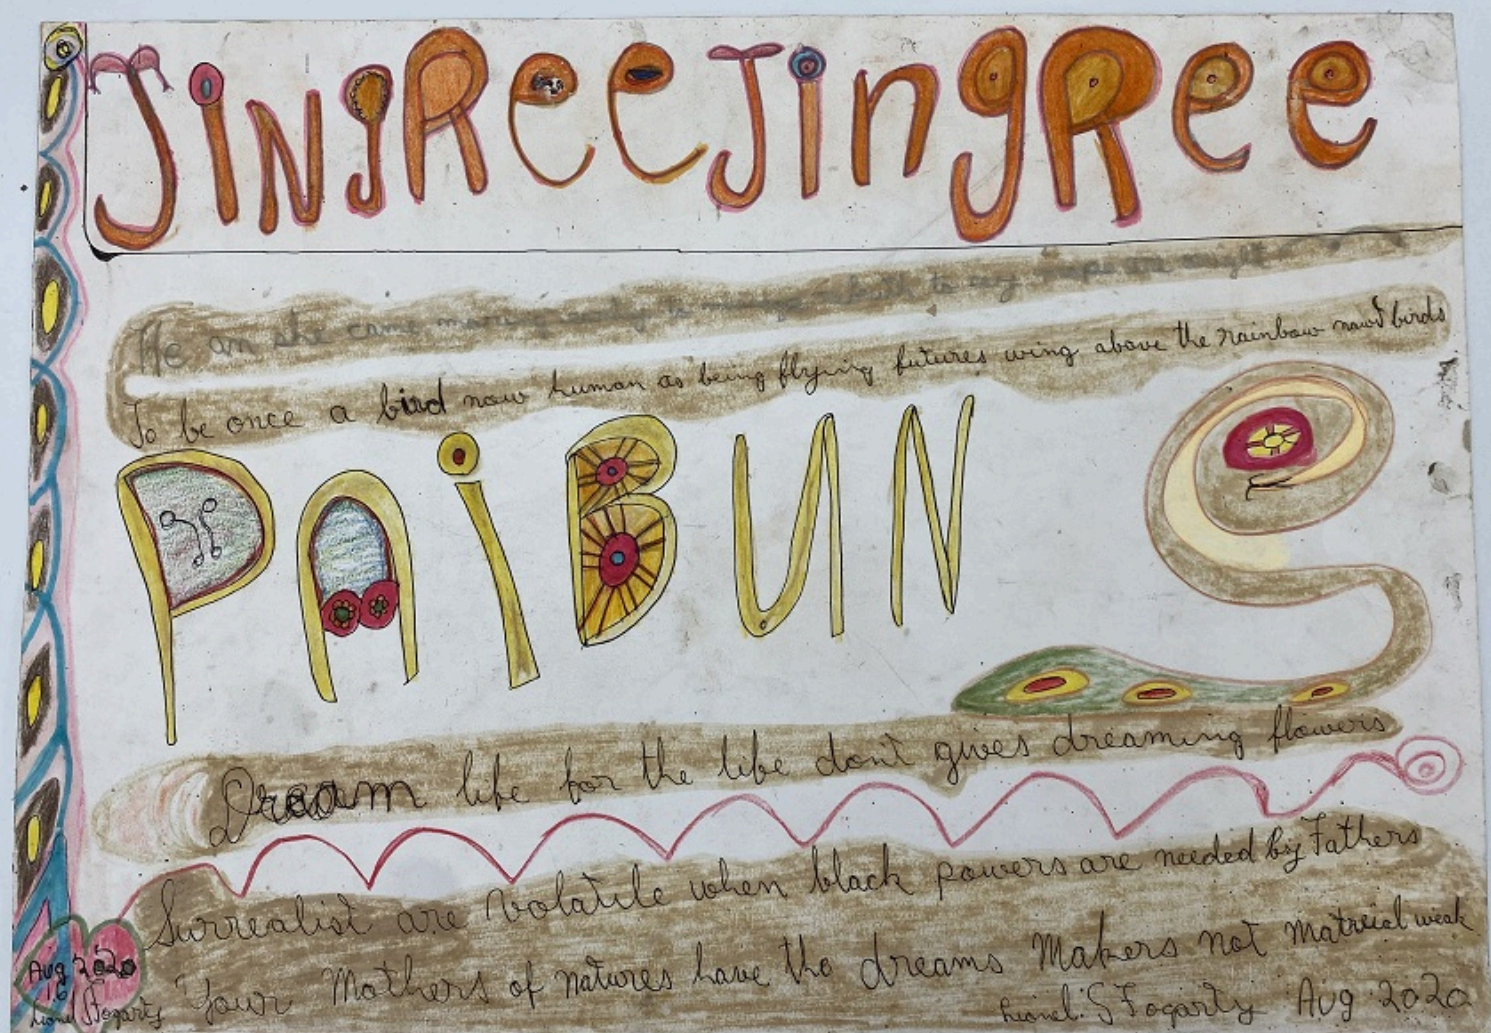 JiNgReeJingRee
He an she came
To be once a bird now human as being flying futures wing above the rainbow nawd birds
PAiBUN
Dream life for the life don't gives dreaming flowers
Surrealist are volatile when black powers are needed by Fathers
Your Mothers of natures have tho dreams Makers not matreial weak
Aug 2020
16
Lionel S Fogarty
Lionel. S Fogarty Aug 2020